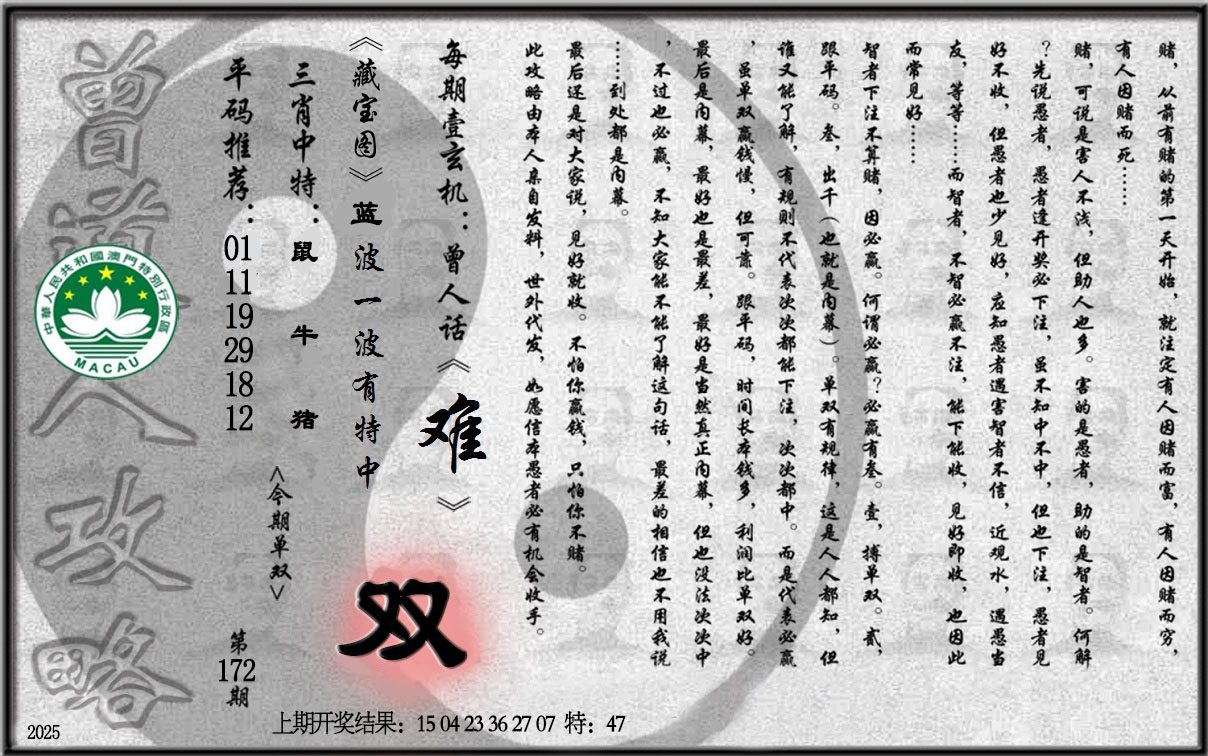 赌，从前有赌的第一天开始，就注定有人因赌而富，有人因赌而穷，
有人因赌而死……
赌，可说是害人不浅，但助人也多。害的是愚者，助的是智者。何解
？先说愚者，愚者逢开奖必下注，虽不知中不中，但也下注，愚者见
好不收，但愚者也少见好，应知愚者遇害智者不信，近观水，遇愚当
友，等等……而智者，不智必赢不注，能下能收，见好即收，也因此
而常见好……
智者下注不算赌，因必赢。何谓必赢？必赢有叁。壹，搏单双。贰，
跟平码。叁，出千（也就是内幕）。单双有规律，这是人人都知，但
谁又能了解，有规则不代表次次都能下注，次次都中。而是代表必赢
，虽单双赢钱慢，但可靠。跟平码，时间长本钱多，利润比单双好。
最后是内幕，最好也是最差，最好是当然真正内幕，但也没法次次中
，不过也必赢，不知大家能不能了解这句话，最差的相信也不用我说
……到处都是内幕。
最后还是对大家说，见好就收。不怕你赢钱，只怕你不赌。
此攻略由本人亲自发料，世外代发，如愿信本愚者必有机会收手。
每期壹玄机：曾人话《难》
双
《藏宝图》蓝波一波有特中
三肖中特：鼠牛猪
<今期单双>
平码推荐：
01
11
19
29
18
12
第
172
期
曾道人攻略
中華人民共和國澳門特別行政區
MACAU
上期开奖结果：15 04 23 36 27 07 特：47
2025